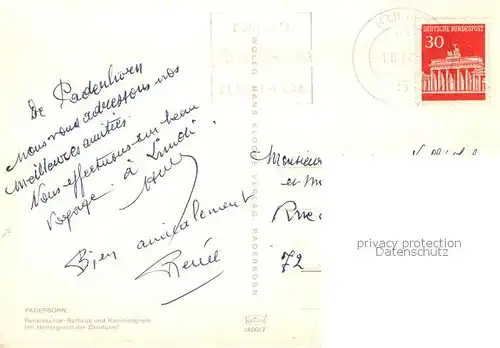 De Padenhorn
Nous vous adressons nos
meilleures amitiés.
Nous effectuons un beau
voyage. à Lundi
Bien amicalement
Renée
PADERBORN
Renaissance-Rathaus und Kammerspiele
(im Hintergrund der Domturm)
1400/7
WOLFG. HANS KLOCKE VERLAG PADERBORN
DEUTSCHE BUNDESPOST
30
KÖL
Monsieur
et M
Rue
72
privacy protection
Datenschutz